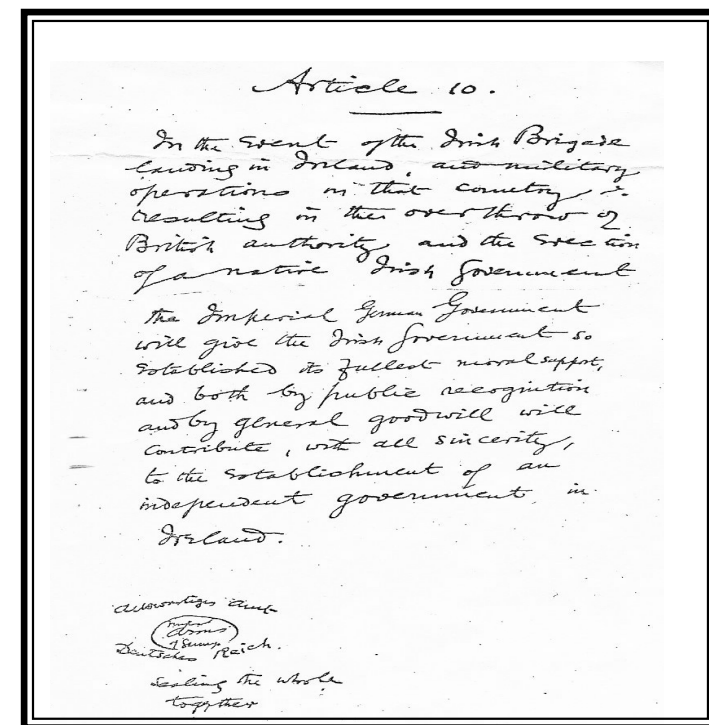 Article 10.
In the event of the Irish Brigade
landing in Ireland, and military
operations in that country
resulting in the overthrow of
British authority and the erection
of a native Irish Government
the Imperial German Government
will give the Irish Government so
established its fullest moral support,
and both by public recognition
and by general goodwill will
contribute, with all sincerity,
to the establishment of an
independent government in
Ireland.
Auswartiges Amt
Arms
Deutsches Reich.
Sealing the whole
together